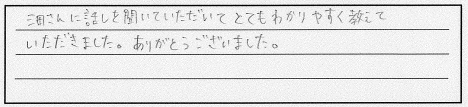 酒さんに話しを聞いていただいてとてもわかりやすく教えて
いただきました。ありがとうございました。